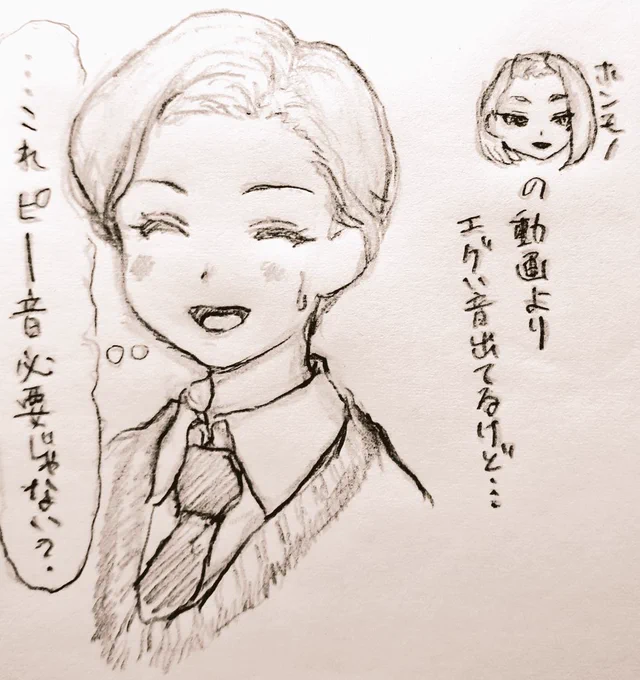 ホンモノ
の動画より
エグい音出てるけど…
…これピー音必要じゃない?